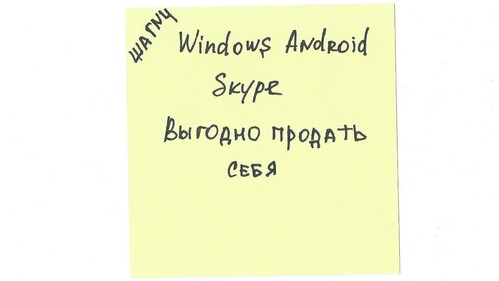 ШАГNЧ
Windows Android
Skype
Выгодно продать
себя